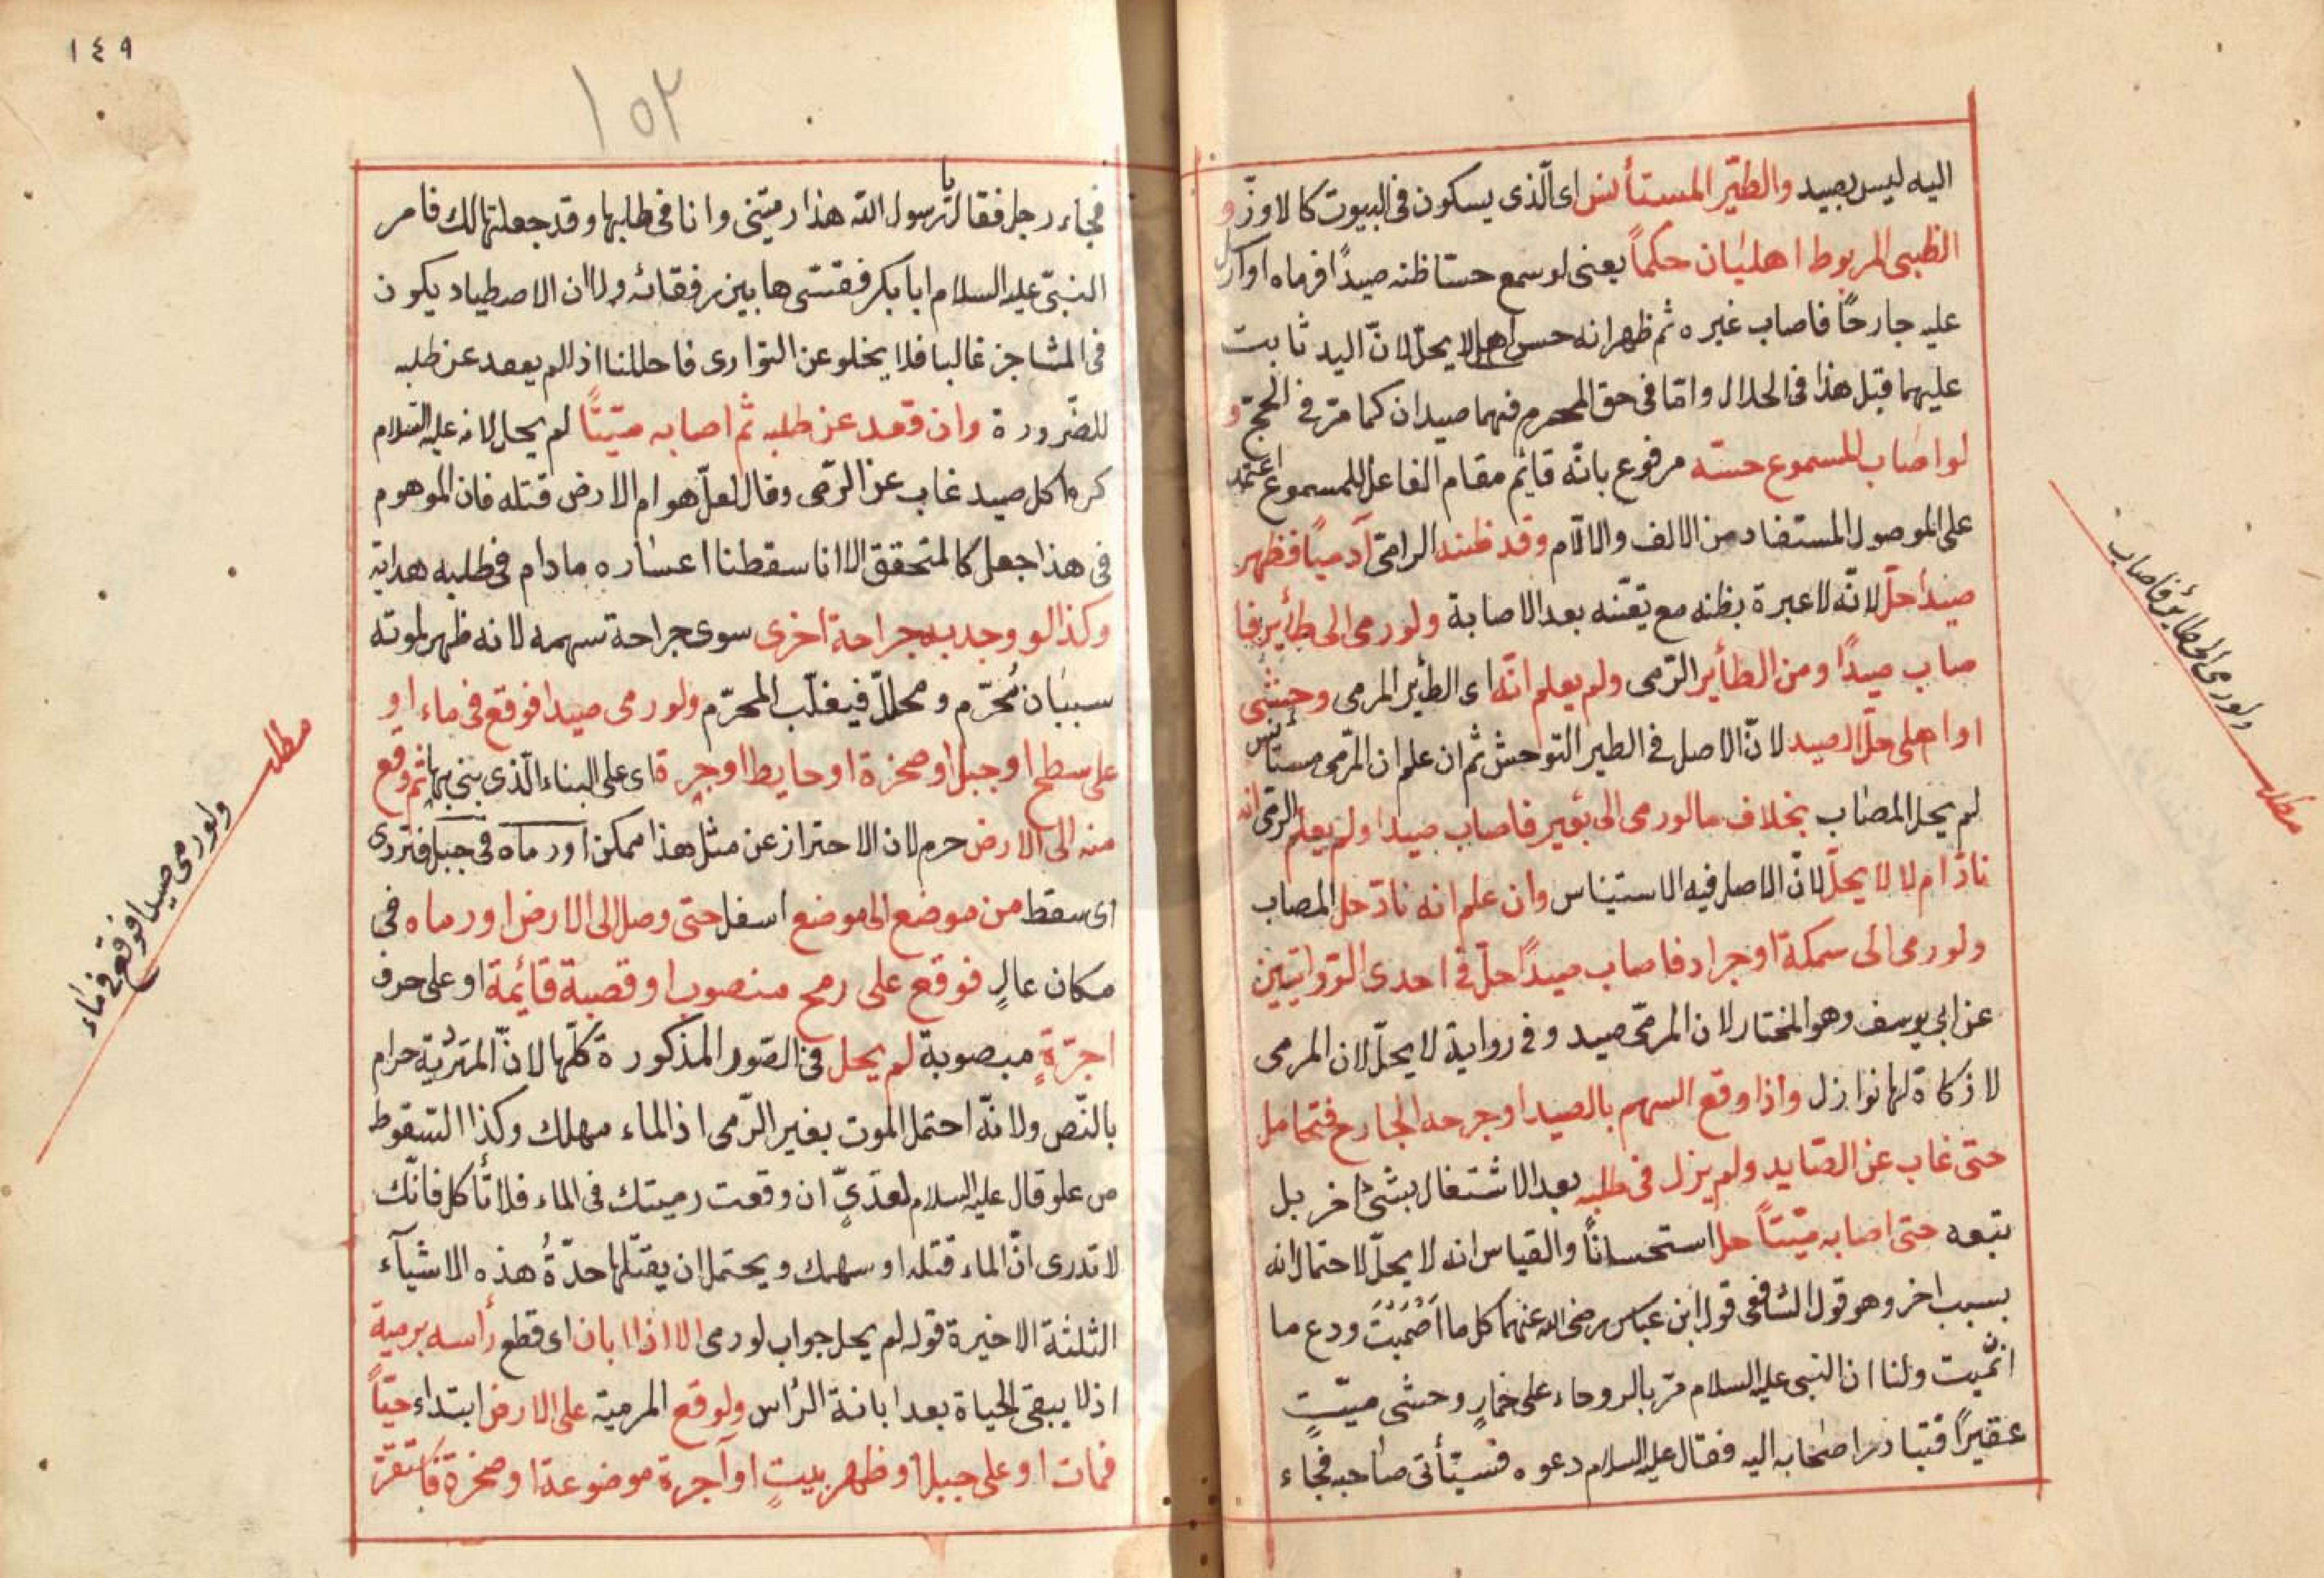 اليه ليس بصيد والطير المستأنس اى الذى يسكون فى البيوت كالاوز و
الظبى المربوط اهليان حكما يعنى لو سمع حسا ظنه صيدا فرماه او ارسل
عليه جارحا فاصاب غيره ثم ظهر انه حس اهلى لا يحل لان اليد ثابت
عليهما قبل هذا فى الحلال واما فى حق المحرم فهما صيدان كما مر فى الحج و
لو اصاب المسموع حسه مرفوع بانه قايم مقام الفاعل للمسموع اعتمد
على الموصول المستفاد من الالف واللام وقد ظنه الرامى آدميا فظهر
صيدا حل لانه لا عبرة بظنه مع تعينه بعد الاصابة ولو رمى الى طائر فا
صاب صيدا ومن الطائر الرمى ولم يعلم انه اى الطير المرمى وحشى
او اهلى حل الصيد لان الاصل فى الطير التوحش ثم ان علم ان المرمى مستأنس
لم يحل المصاب بخلاف ما لو رمى الى بعير فاصاب صيدا ولم يعلم الرمى انه
ناد ام لا لا يحل لان الاصل فيه الاستيناس وان علم انه ناد حل المصاب
ولو رمى الى سمكة او جراد فاصاب صيدا حل فى احدى الروايتين
عن ابى يوسف وهو المختار لان المرمى صيد وفى رواية لا يحل لان المرمى
لا ذكاة لها نوازل واذا وقع السهم بالصيد او جرحه الجارح فتحامل
حتى غاب عن الصايد ولم يزل فى طلبه بعد الاشتغال بشئ اخر بل
تبعه حتى اصابه ميتا حل استحسانا والقياس انه لا يحل لاحتمال انه
بسبب اخر وهو قول الشافعى قول ابن عباس رضى الله عنهما كل ما اصميت ودع ما
انميت ولنا ان النبى عليه السلام مر بالروحاء على خمار وحشى ميت
عقيرا فتبادر اصحابه اليه فقال عليه السلام دعوه فسيأتى صاحبه فجاء
ولو رمى الى طائر فاصاب
مطلب
١٤٩
١٥٢
فجاء رجل فقال يا رسول الله هذا رميتى وانا فى طلبها وقد جعلتها لك فامر
النبى عليه السلام ابا بكر فقسمها بين رفقائه ولان الاصطياد يكون
فى المشاجر غالبا فلا يخلو عن التوارى فاحللنا اذا لم يعقد عن طلبه
للضرورة وان قعد عن طلبه ثم اصابه ميتا لم يحل لانه عليه السلام
كره اكل صيد غاب عن الرمى وقال لعل هوام الارض قتله فان الموهوم
فى هذا جعل كالمتحقق الا انا سقطنا اعتباره مادام فى طلبه هداية
وكذا لو وجد به جراحة اخرى سوى جراحة سهمه لانه ظهر لموته
سببان محرم ومحلل فيغلب المحرم ولو رمى صيدا فوقع فى ماء او
على سطح او جبل او صخرة او حايط او اجرة اى على البناء الذى بنى بها ثم وقع
منه الى الارض حرم لان الاحتراز عن مثل هذا ممكن او رماه فى جبل فتردى
اى سقط من موضع الى موضع اسفل حتى وصل الى الارض او رماه فى
مكان عال فوقع على رمح منصوب او قصبة قائمة او على حرف
اجرة مبصوبة لم يحل فى الصور المذكورة كلها لان المتردية حرام
بالنص ولانه احتمل الموت بغير الرمى اذ الماء مهلك وكذا السقوط
من علو قال عليه السلام لعدى ان وقعت رميتك فى الماء فلا تأكل فانك
لا تدرى ان الماء قتله او سهمك ويحتمل ان يقتلها حدة هذه الاشياء
الثلثة الاخيرة قوله لم يحل جواب لو رمى الا اذا ابان اى قطع رأسه برمية
اذ لا يبقى الحياة بعد ابانة الرأس ولو وقع المرمية على الارض ابتداء حيا
فمات او على جبل او ظهر بيت او آجرة موضوعة او صخرة فاستقر
مطلب
ولو رمى صيدا فوقع فى ماء